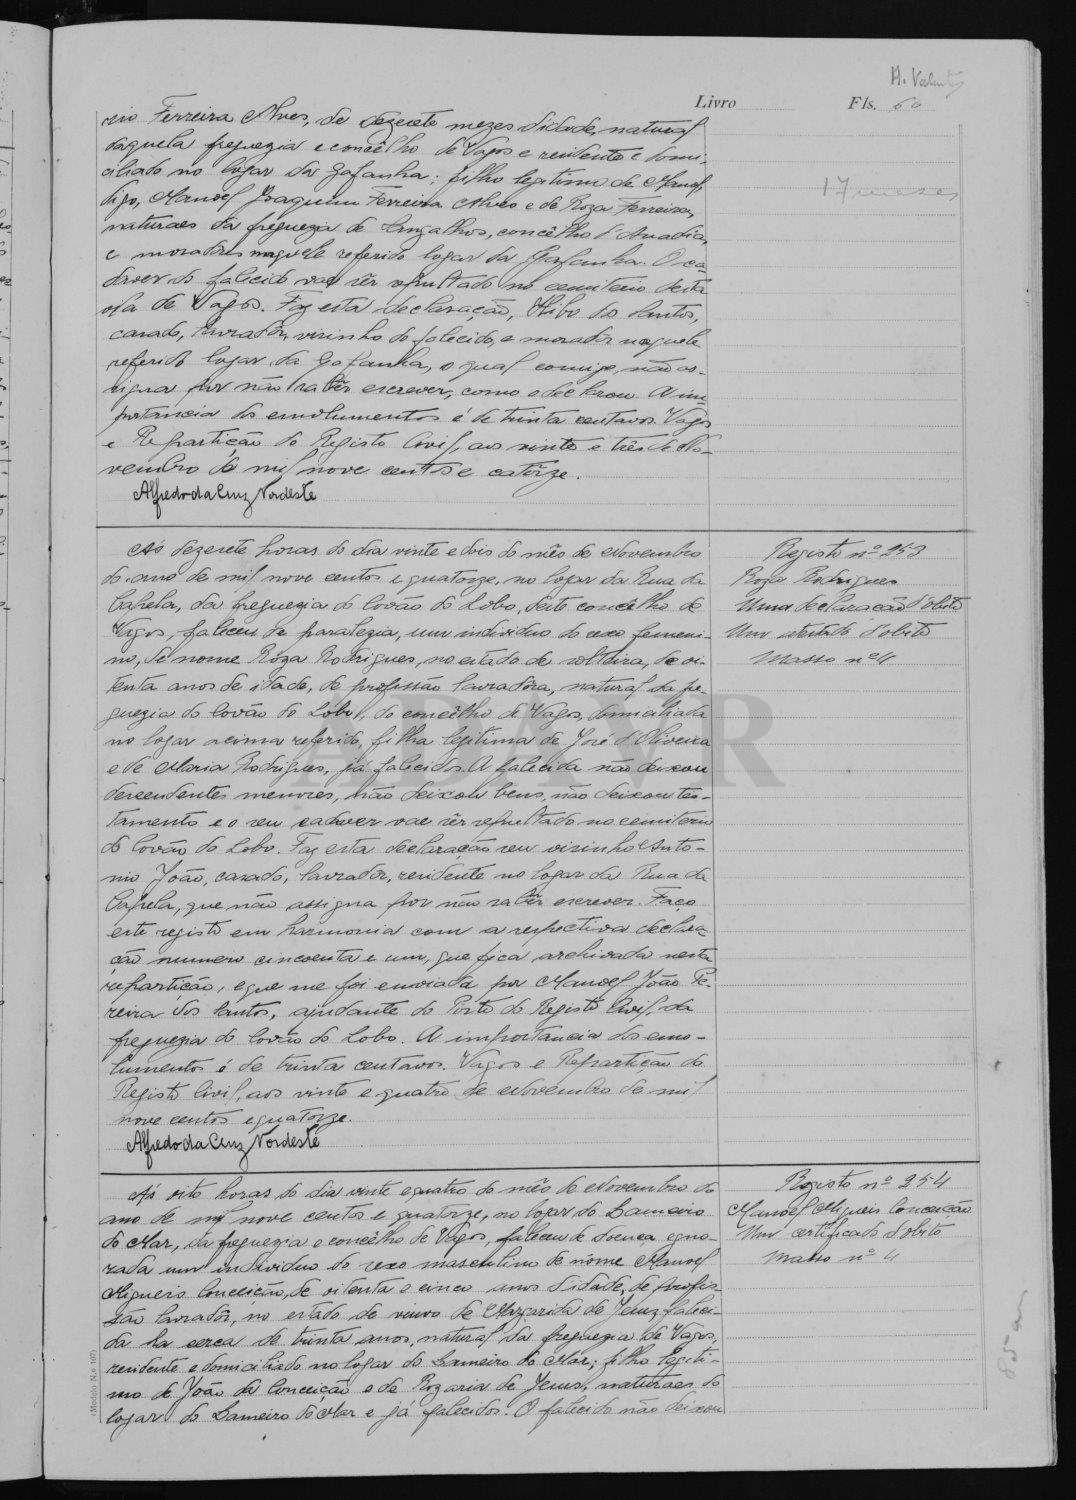 H. Valente
Livro Fls. 60
rio Ferreira Alves, de dezesete mezes d'idade, natural
daquela freguezia e concêlho de Vagos e residente e domi-
ciliado no logar da Gafanha; filho legitimo de Manoel,
digo, Manoel Joaquim Ferreira Alves e de Roza Ferreira,
17 meses
naturaes da freguezia de Sangalhos, concêlho d'Anadia,
e moradores naquele referido logar da Gafanha. O ca-
daver do falecido vae sêr sepultado no cemiterio desta
vila de Vagos. Faz esta declaração, dos Santos,
casado, lavradôr, visinho do falecido, e moradôr naquele
referido logar da Gafanha, o qual comigo não as-
signa por não sabêr escrever, como o declarou. A im-
portancia dos emolumentos é de trinta centavos. Vagos
e Repartição do Registo Civil, aos vinte e três de No-
vembro de mil nove centos e catôrze.
Alfredo da Cruz Nordeste
Ás dezesete horas do dia vinte e dois do mês de Novembro
do ano de mil nove centos e quatorze, no logar da Rua da
Capela, da freguezia do Covão do Lobo, deste concêlho de
Vagos, faleceu de paralezia, um individuo do sexo femeni-
no, de nome Róza Rodrigues, no estado de solteira, de oi-
tenta anos de idade, de profissão lavradôra, natural da fre-
guezia do Covão do Lobo, do concêlho de Vagos, domiciliada
no logar acima referido, filha legitima de José d'Oliveira
e de Maria Rodrigues, já falecidos. A falecida não deixou
descendentes menores, não deixou bens, não deixou tes-
tamento e o seu cadaver vae sêr sepultado no cemiterio
do Covão do Lobo. Faz esta declaração seu visinho Anto-
nio João, casado, lavradôr, residente no logar da Rua da
Capela, que não assigna por não sabêr escrever. Faço
este registo em harmonia com a respectiva declara-
ção numero cincoenta e um, que fica archivada nesta
repartição, e que me foi enviada por Manoel João Pe-
reira dos Santos, ajudante do Posto do Registo Civil, da
freguezia do Covão do Lobo. A importancia dos emo-
lumentos é de trinta centavos. Vagos e Repartição do
Registo Civil, aos vinte e quatro de Novembro de mil
nove centos e quatorze.
Alfredo da Cruz Nordeste
Registo nº 253
Roza Rodrigues
Uma declaração d'obito
Um atestado d'obito
Masso nº 4
ADAVR
Ás oito horas do dia vinte e quatro do mês de Novembro do
ano de mil nove centos e quatorze, no logar do Lameiro
do Mar, da freguezia e concêlho de Vagos, faleceu de doença igno-
rada um individuo do sexo masculino de nome Manoel
Migueis Conceição, de oitenta e cinco anos d'idade, de profis-
são lavradôr, no estado de viuvo de Margarida de Jesus, faleci-
da ha cerca de trinta anos, natural da freguezia de Vagos,
residente e domiciliado no logar do Lameiro do Mar; filho legiti-
mo de João da Conceição e de Rozaria de Jesus, naturaes do
logar do Lameiro do Mar e já falecidos. O falecido não deixou
Registo nº 254
Manoel Migueis Conceição
Um certificado d'obito
Masso nº 4
85 an
(Modelo N.º 107)